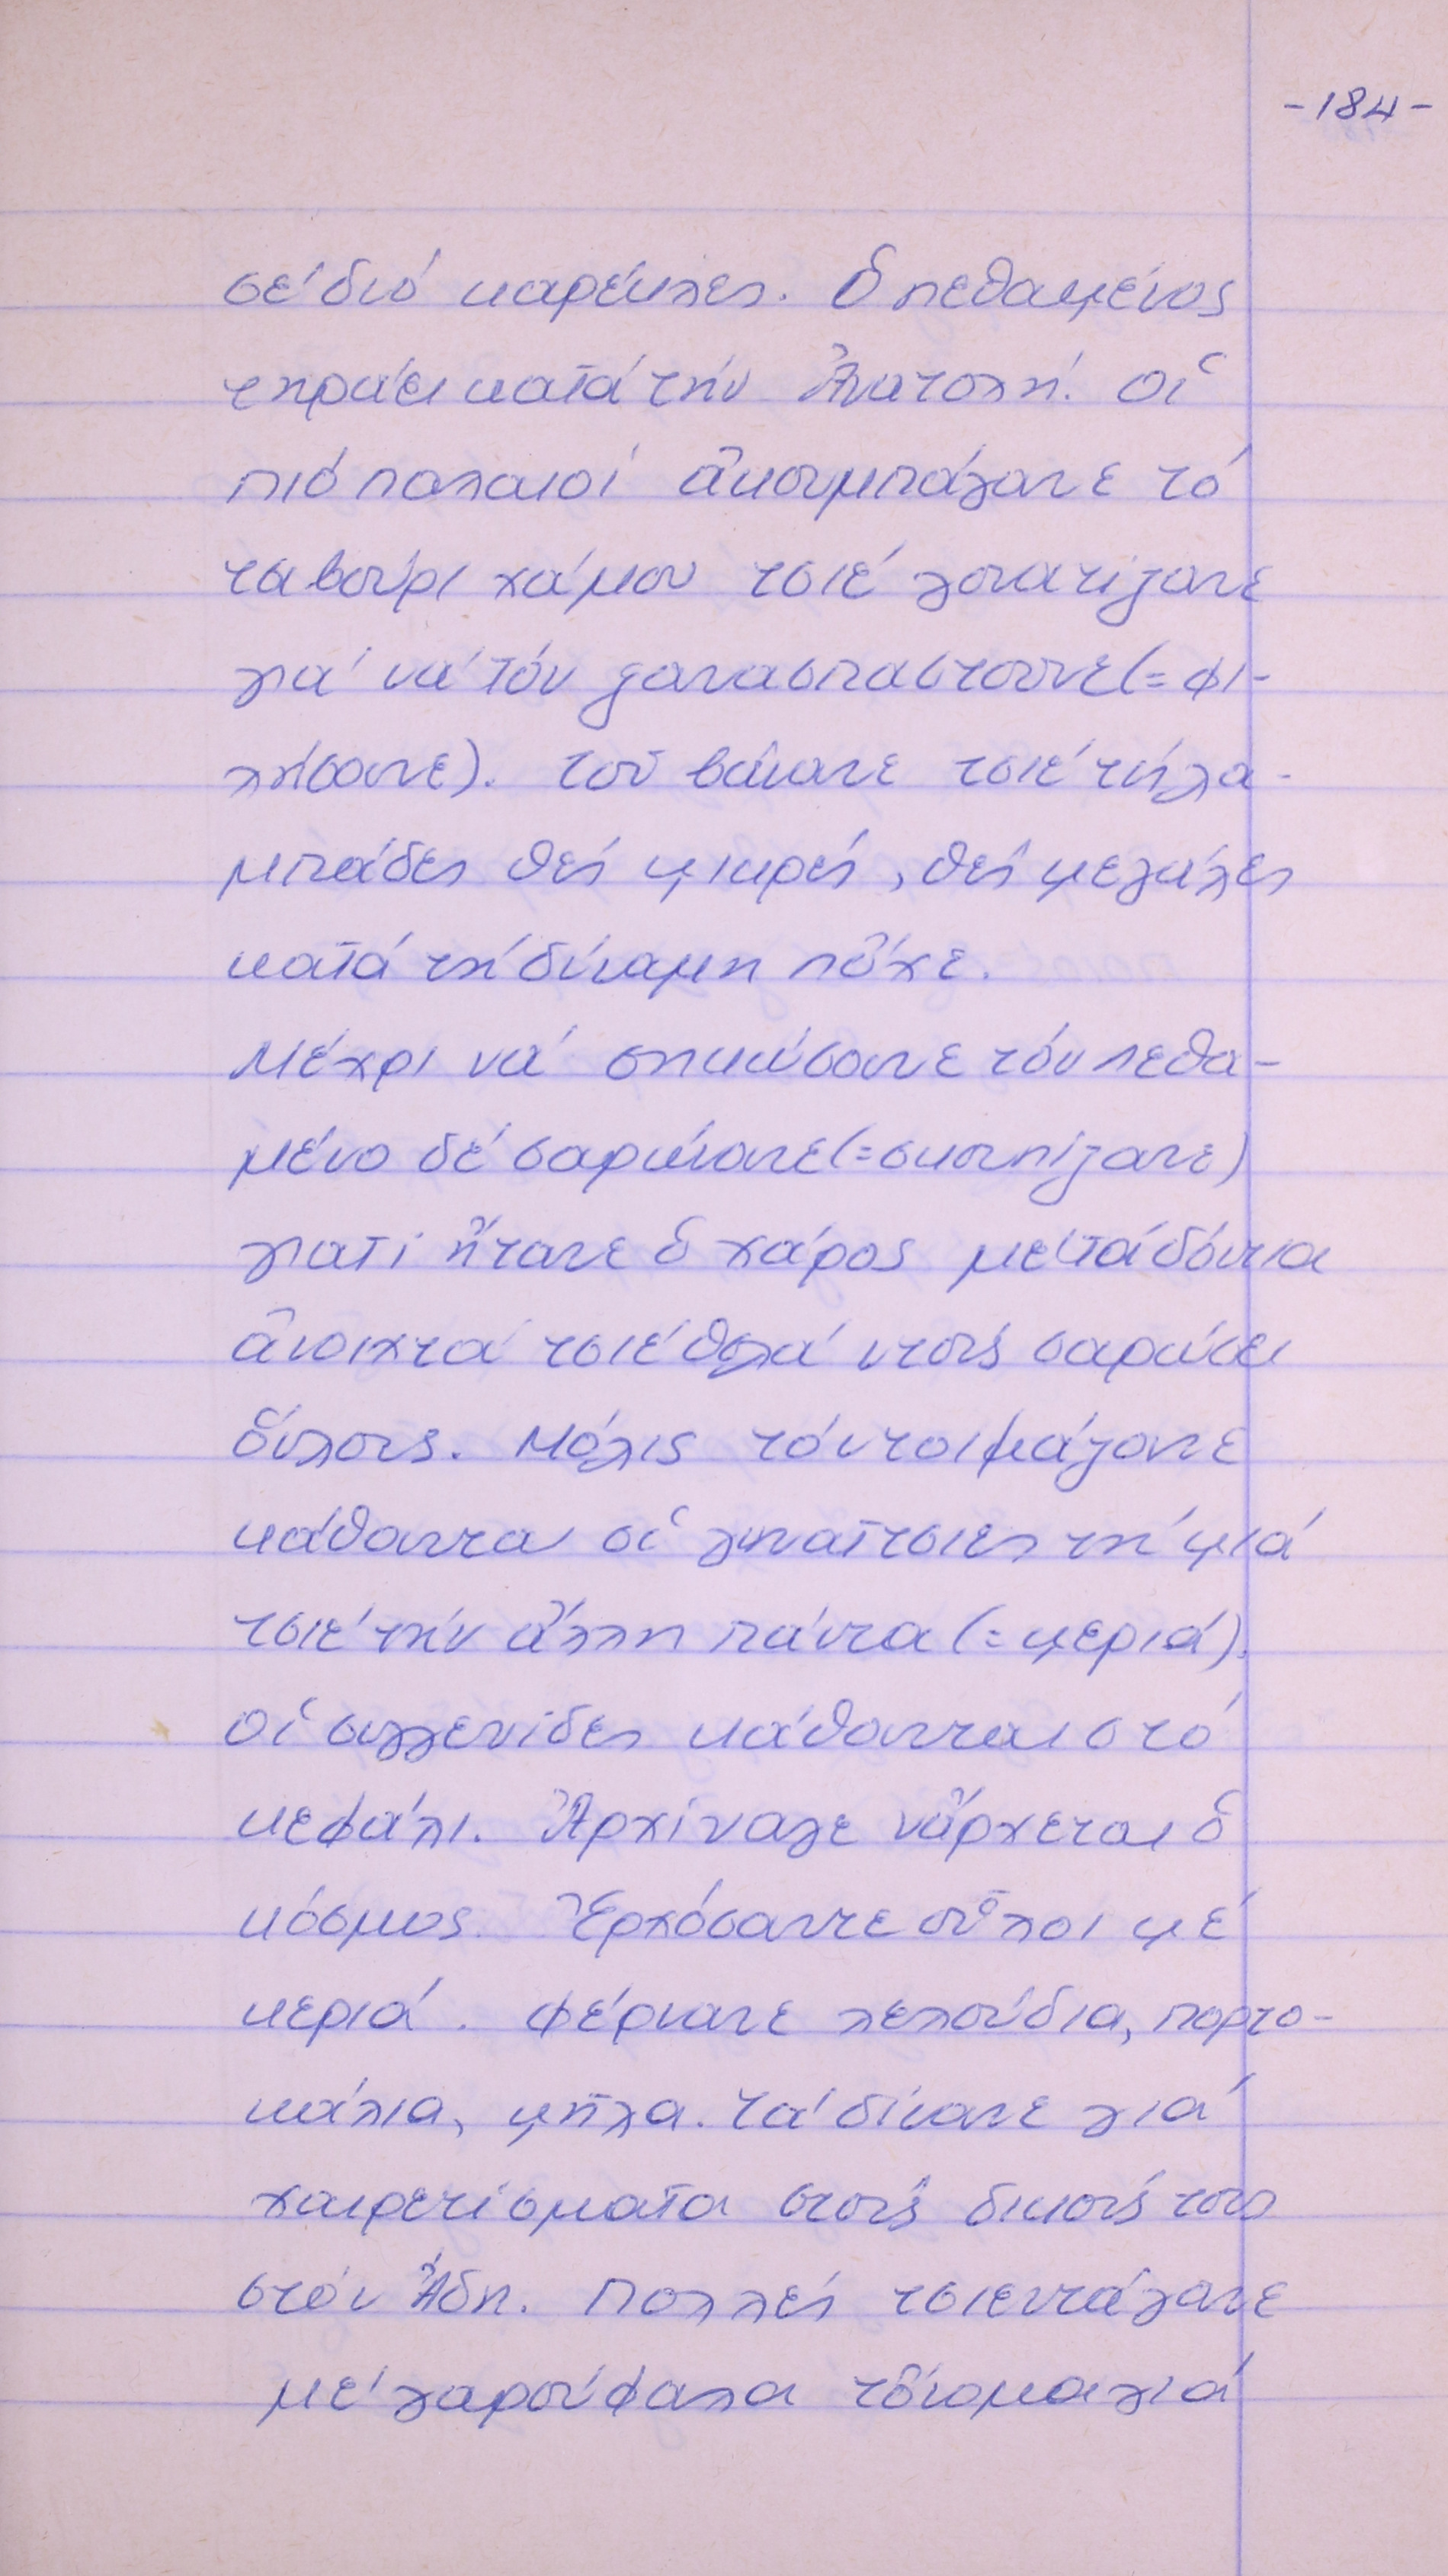 -184-
σέ διό καρέκλες. Ὁ πεθαμένος
τηράει κατά τήν Ἀνατολή. Οἱ
πιό παλαιοί ἀκουμπάγανε τό
ταβούρι χάμου τσιέ γονατίζανε
γιά νά τόν ξανασπαστουνε (= φι-
λήσουνε). Τοῦ βάνανε τσιέ τή λα-
μπάδες θές μικρές, θές μεγάλες
κατά τή δύναμη πὄχε.
Μέχρι νά σηκώσουνε τόν πεθα-
μένο δέ σαρώνανε (= σκουπίζανε)
γιατί ἤτανε ὁ χάρος μέ τά δόντια
ἀνοιχτά τσιέ θελά ντούς σαρώσει
οὕλους. Μόλις τόν τοιμάζανε
κάθονται οἱ γυναῖτσιες τή μιά
τσιέ τήν ἄλλη πάντα (= μεριά).
Οἱ συγγενίδες κάθονται στό
κεφάλι. Ἀρχίναγε νἄρχεται ὁ
κόσμος. Ἐρχόσαντε οὗλοι μέ
κεριά. Φέρνανε λελούδια, πορτο-
κάλια, μῆλα. Τά δίνανε γιά
χαιρετίσματα στούς δικούς τους
στόν Ἅδη. Πολλές τσιεντάγανε
μέ γαρούφαλα τὄνομα γιά